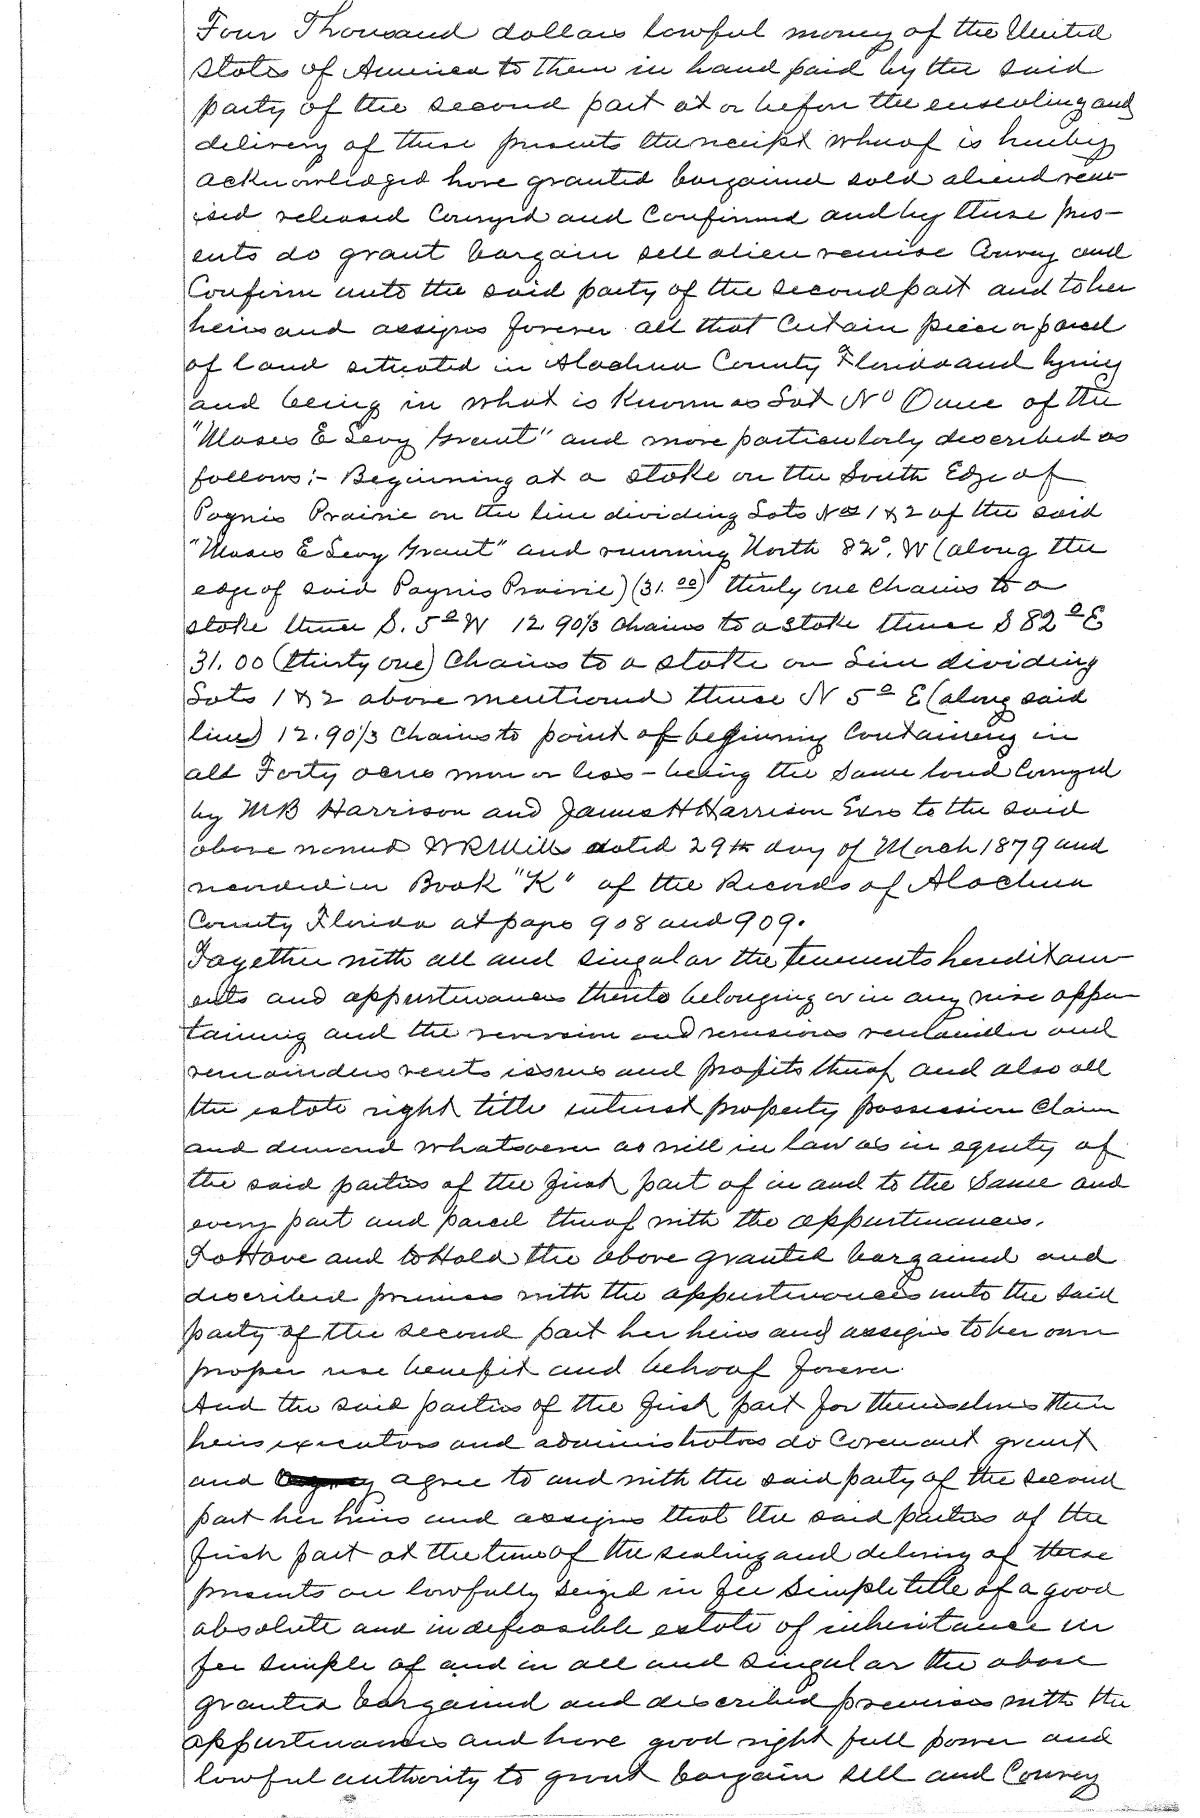 Four Thousand dollars lawful money of the United
States of America to them in hand paid by the said
party of the second part at or before the ensealing and
delivery of these presents the receipt whereof is hereby
acknowledged have granted bargained sold aliend rem-
ised released Conveyed and Confirmed and by these pres-
ents do grant bargain sell alien remise Convey and
Confirm unto the said party of the second part and to her
heirs and assigns forever all that Certain piece or parcel
of land situated in Alachua County Florida and lying
and being in what is Known as Lot No One of the
"Moses E Levy Grant" and more particularly described as
follows:- Beginning at a stake on the South Edge of
Paynes Prairie on the line dividing Lots Nos 1 & 2 of the said
"Moses E Levy Grant" and running North 82°. W (along the
edge of said Paynes Prairie) (31.00) thirty one Chains to a
stake thence S. 5° W 12.90⅓ Chains to a stake thence S 82° E
31.00 (thirty one) Chains to a stake on Line dividing
Lots 1 & 2 above mentioned thence N 5° E (along said
line) 12.90⅓ Chains to point of beginning Containing in
all Forty acres more or less - being the Same land Conveyed
by M B Harrison and James H Harrison Exrs to the said
above named W R Mills dated 29th day of March 1879 and
recorded in Book "K" of the Records of Alachua
County Florida at pages 908 and 909.
Together with all and singular the tenements hereditam-
ents and appurtenances thereto belonging or in any wise apper-
taining and the reversion and reversions remainder and
remainders rents issues and profits thereof and also all
the estate right title interest property possession Claim
and demand whatsoever as well in law as in equity of
the said parties of the first part of in and to the Same and
every part and parcel thereof with the appurtenances.
To Have and to Hold the above granted bargained and
described premises with the appurtenances unto the said
party of the second part her heirs and assigns to her own
proper use benefit and behoof forever.
And the said parties of the first part for themselves their
heirs executors and administrators do Covenant grant
and agree to and with the said party of the second
part her heirs and assigns that the said parties of the
first part at the time of the sealing and delivery of these
presents are lawfully seized in fee Simple title of a good
absolute and indefeasible estate of inheritance in
fee simple of and in all and singular the above
granted bargained and described premises with the
appurtenances and have good right full power and
lawful authority to grant bargain sell and Convey